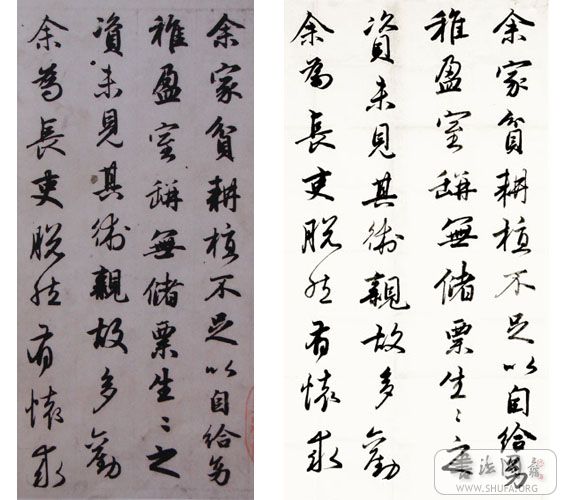 余家貧耕植不足以自給幼
稚盈室缾無儲粟生〻之
資未見其術親故多勸
余為長吏脫然有懷求
余家貧耕植不足以自給幼
稚盈室缾無儲粟生〻之
資未見其術親故多勸
余為長吏脫然有懷求
書法网
WWW.SHUFA.ORG